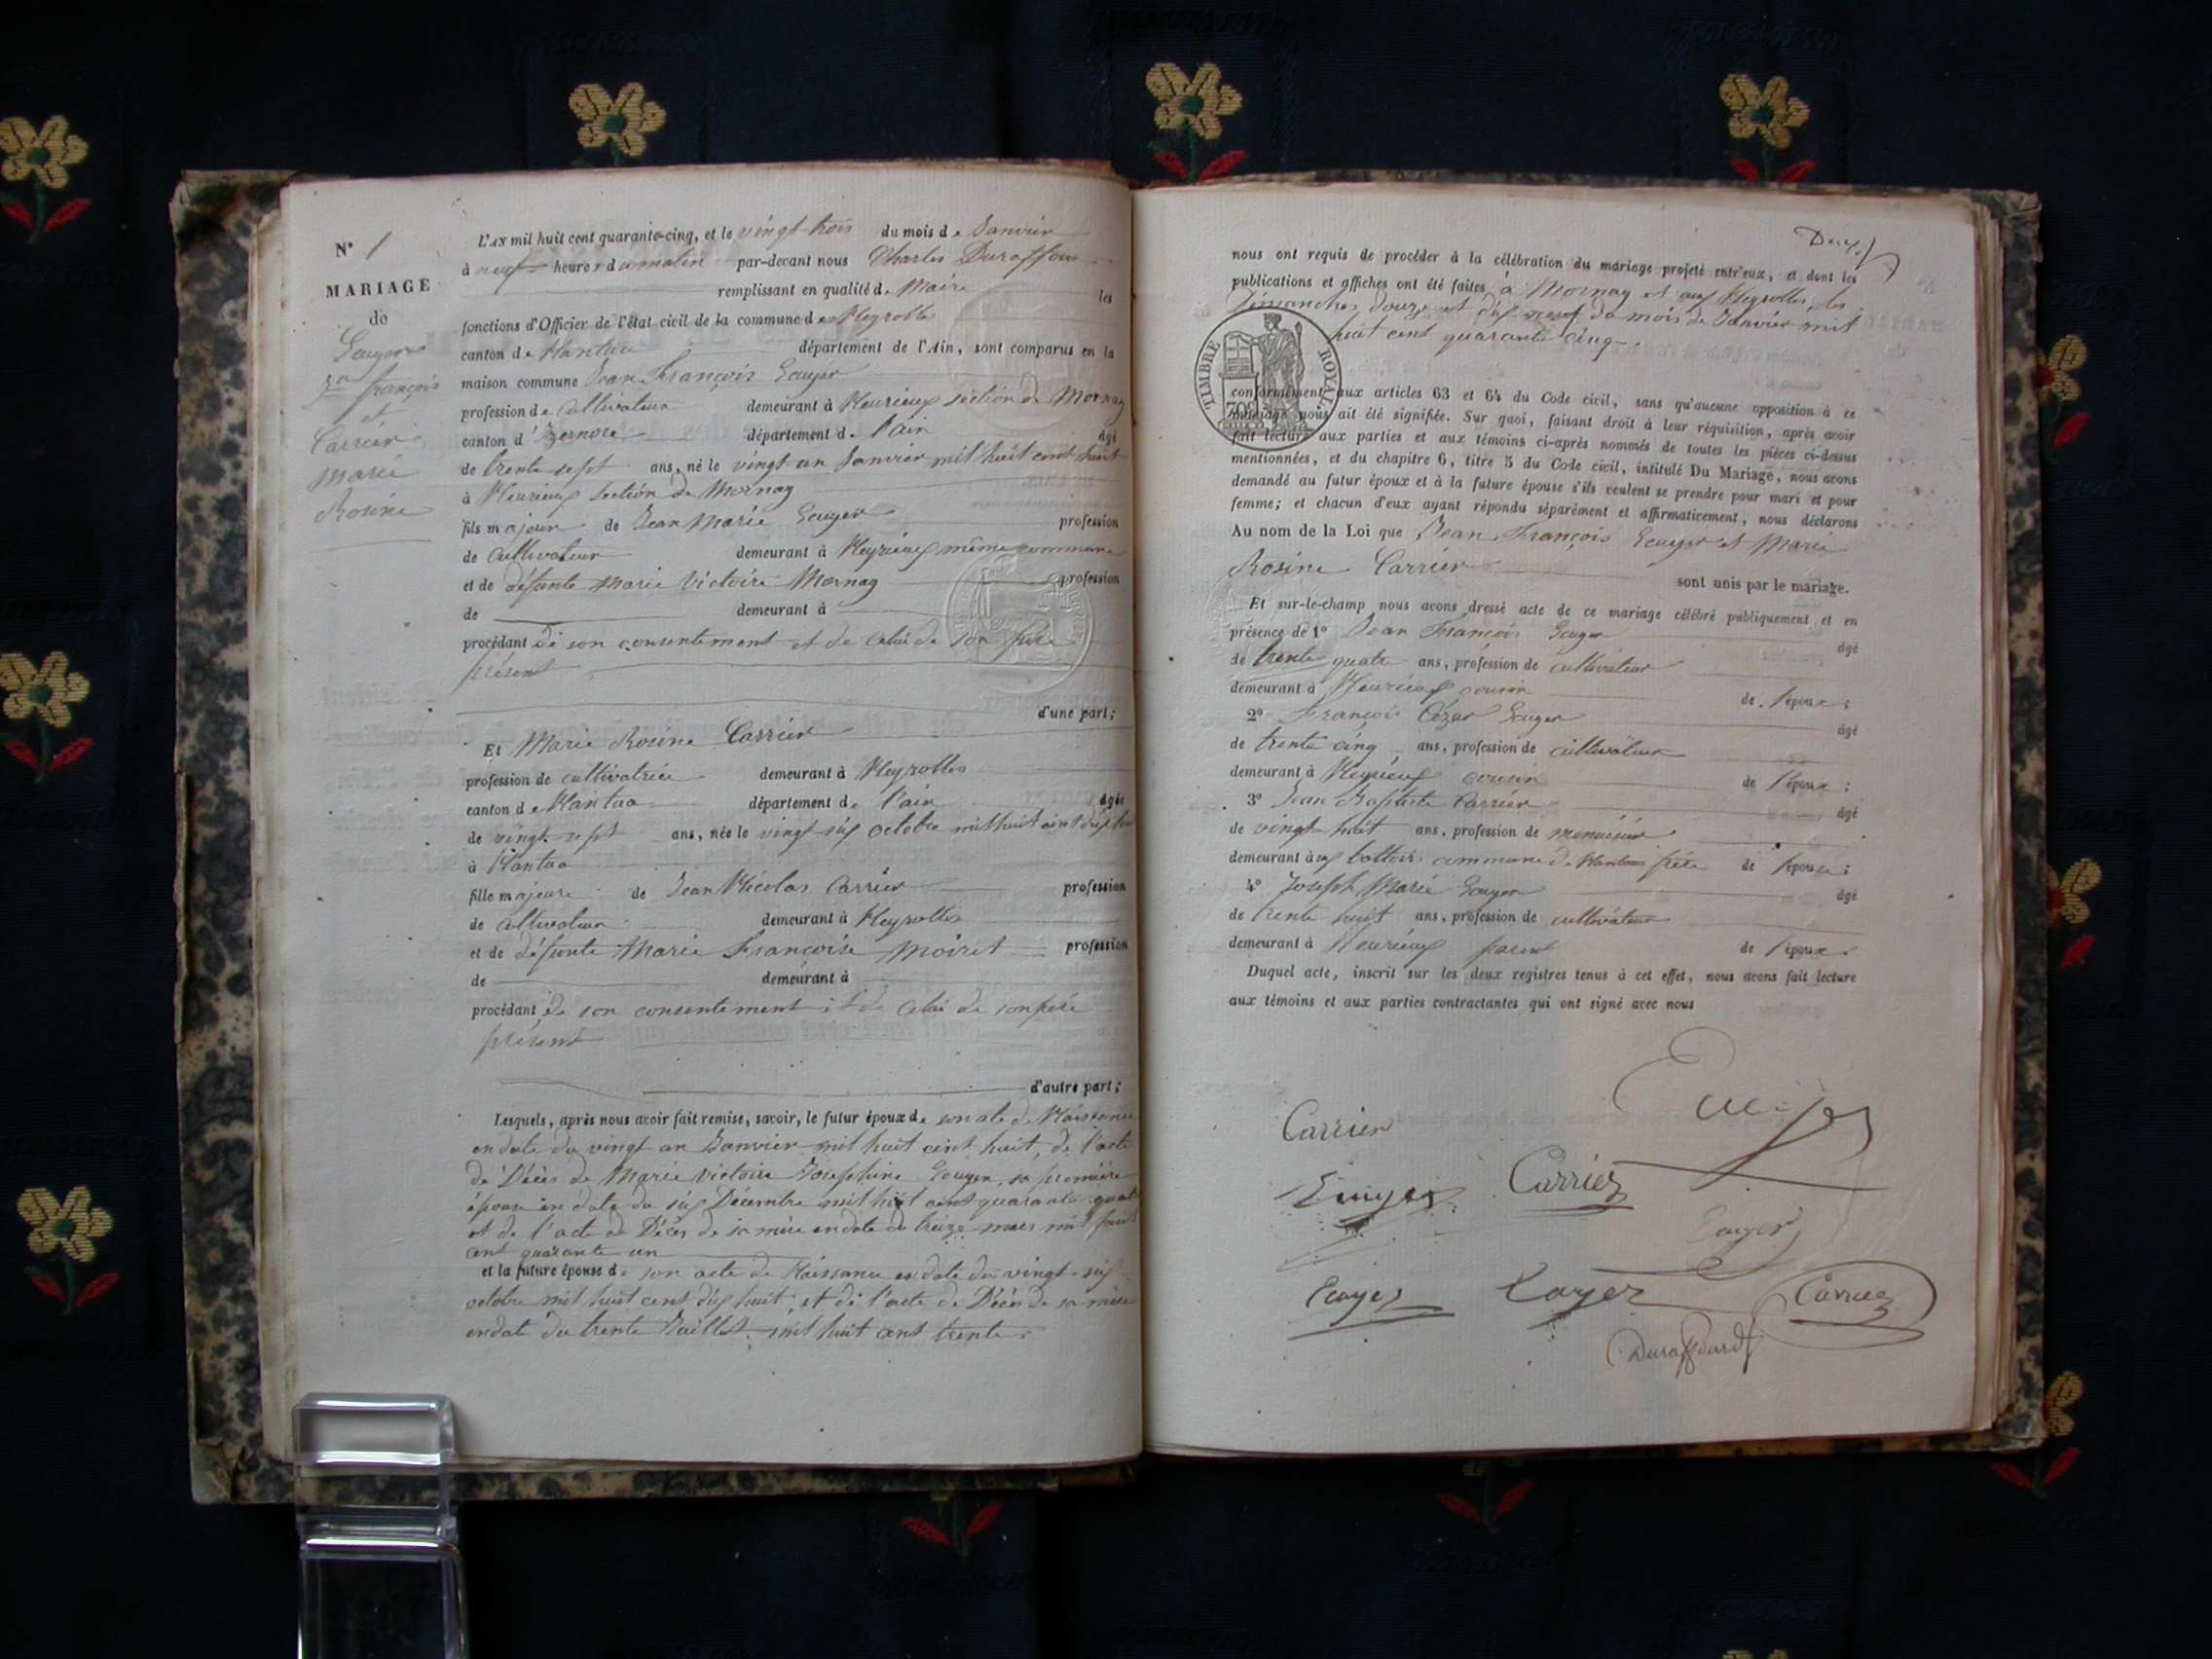 N° 1
MARIAGE
de
Ecuyer
Jn françois
et
Carrier
Marie
Rosine
L'AN mil huit cent quarante-cinq, et le vingt trois du mois de Janvier
à neuf heures du matin par-devant nous Charles Duraffour
remplissant en qualité de Maire les
fonctions d'Officier de l'état civil de la commune de Neyrolles
canton de Nantua département de l'Ain, sont comparus en la
maison commune Jean François Ecuyer
profession de Cultivateur demeurant à section de Mornay
canton d'Izernore département de l'ain âgé
de trente sept ans, né le vingt un Janvier mil huit cent huit
à section de Mornay
fils majeur de Jean Marie Ecuyer profession
de Cultivateur demeurant à même commune
et de défunte Marie Victoire Mornay profession
de demeurant à
procédant de son consentement et de celui de son père
présent
d'une part;
Et Marie Rosine Carrier
profession de cultivatrice demeurant à Neyrolles
canton de Nantua département de l'ain âgée
de vingt sept ans, née le vingt six octobre mil huit cent dix huit
à Nantua
fille majeure de Jean Nicolas Carrier profession
de Cultivateur demeurant à Neyrolles
et de défunte Marie Françoise Moiret profession
de demeurant à
procédant de son consentement et de celui de son père
présent
d'autre part;
Lesquels, après nous avoir fait remise, savoir, le futur époux de son acte de Naissance
en date du vingt un Janvier mil huit cent huit, de l'acte
de Décès de Marie Victoire Josephine Ecuyer, sa première
épouse en date du six Décembre mil huit cent quarante quatre
et de l'acte de Décès de sa mère en date du treize mars mil huit
cent quarante un
et la future épouse de son acte de Naissance en date du vingt-six
octobre mil huit cent dix huit, et de l'acte de Décès de sa mère
en date du trente Juillet mil huit cent trente.
Deux
nous ont requis de procéder à la célébration du mariage projeté entr'eux, et dont les
publications et affiches ont été faites à Mornay et aux Neyrolles, les
Dimanches douze et dix neuf du mois de Janvier mil
huit cent quarante cinq.
TIMBRE ROYAL
conformément aux articles 63 et 64 du Code civil, sans qu'aucune opposition à ce
mariage nous ait été signifiée. Sur quoi, faisant droit à leur réquisition, après avoir
fait lecture aux parties et aux témoins ci-après nommés de toutes les pièces ci-dessus
mentionnées, et du chapitre 6, titre 5 du Code civil, intitulé Du Mariage, nous avons
demandé au futur époux et à la future épouse s'ils veulent se prendre pour mari et pour
femme; et chacun d'eux ayant répondu séparément et affirmativement, nous déclarons
Au nom de la Loi que Jean François Ecuyer et Marie
Rosine Carrier sont unis par le mariage.
Et sur-le-champ nous avons dressé acte de ce mariage célébré publiquement et en
présence de 1° Jean François Ecuyer âgé
de trente quatre ans, profession de cultivateur
demeurant à cousin de l'époux;
2° François Cézar Ecuyer âgé
de trente cinq ans, profession de cultivateur
demeurant à cousin de l'époux;
3° Jean Baptiste Carrier âgé
de vingt huit ans, profession de menuisier
demeurant à commune de Nantua frère de l'épouse;
4° Joseph Marie Ecuyer âgé
de trente huit ans, profession de cultivateur
demeurant à parent de l'époux.
Duquel acte, inscrit sur les deux registres tenus à cet effet, nous avons fait lecture
aux témoins et aux parties contractantes qui ont signé avec nous
Ecuyer
Carrier
Ecuyer Carrier
Ecuyer
Ecuyer Ecuyer Carrier
Duraffourd